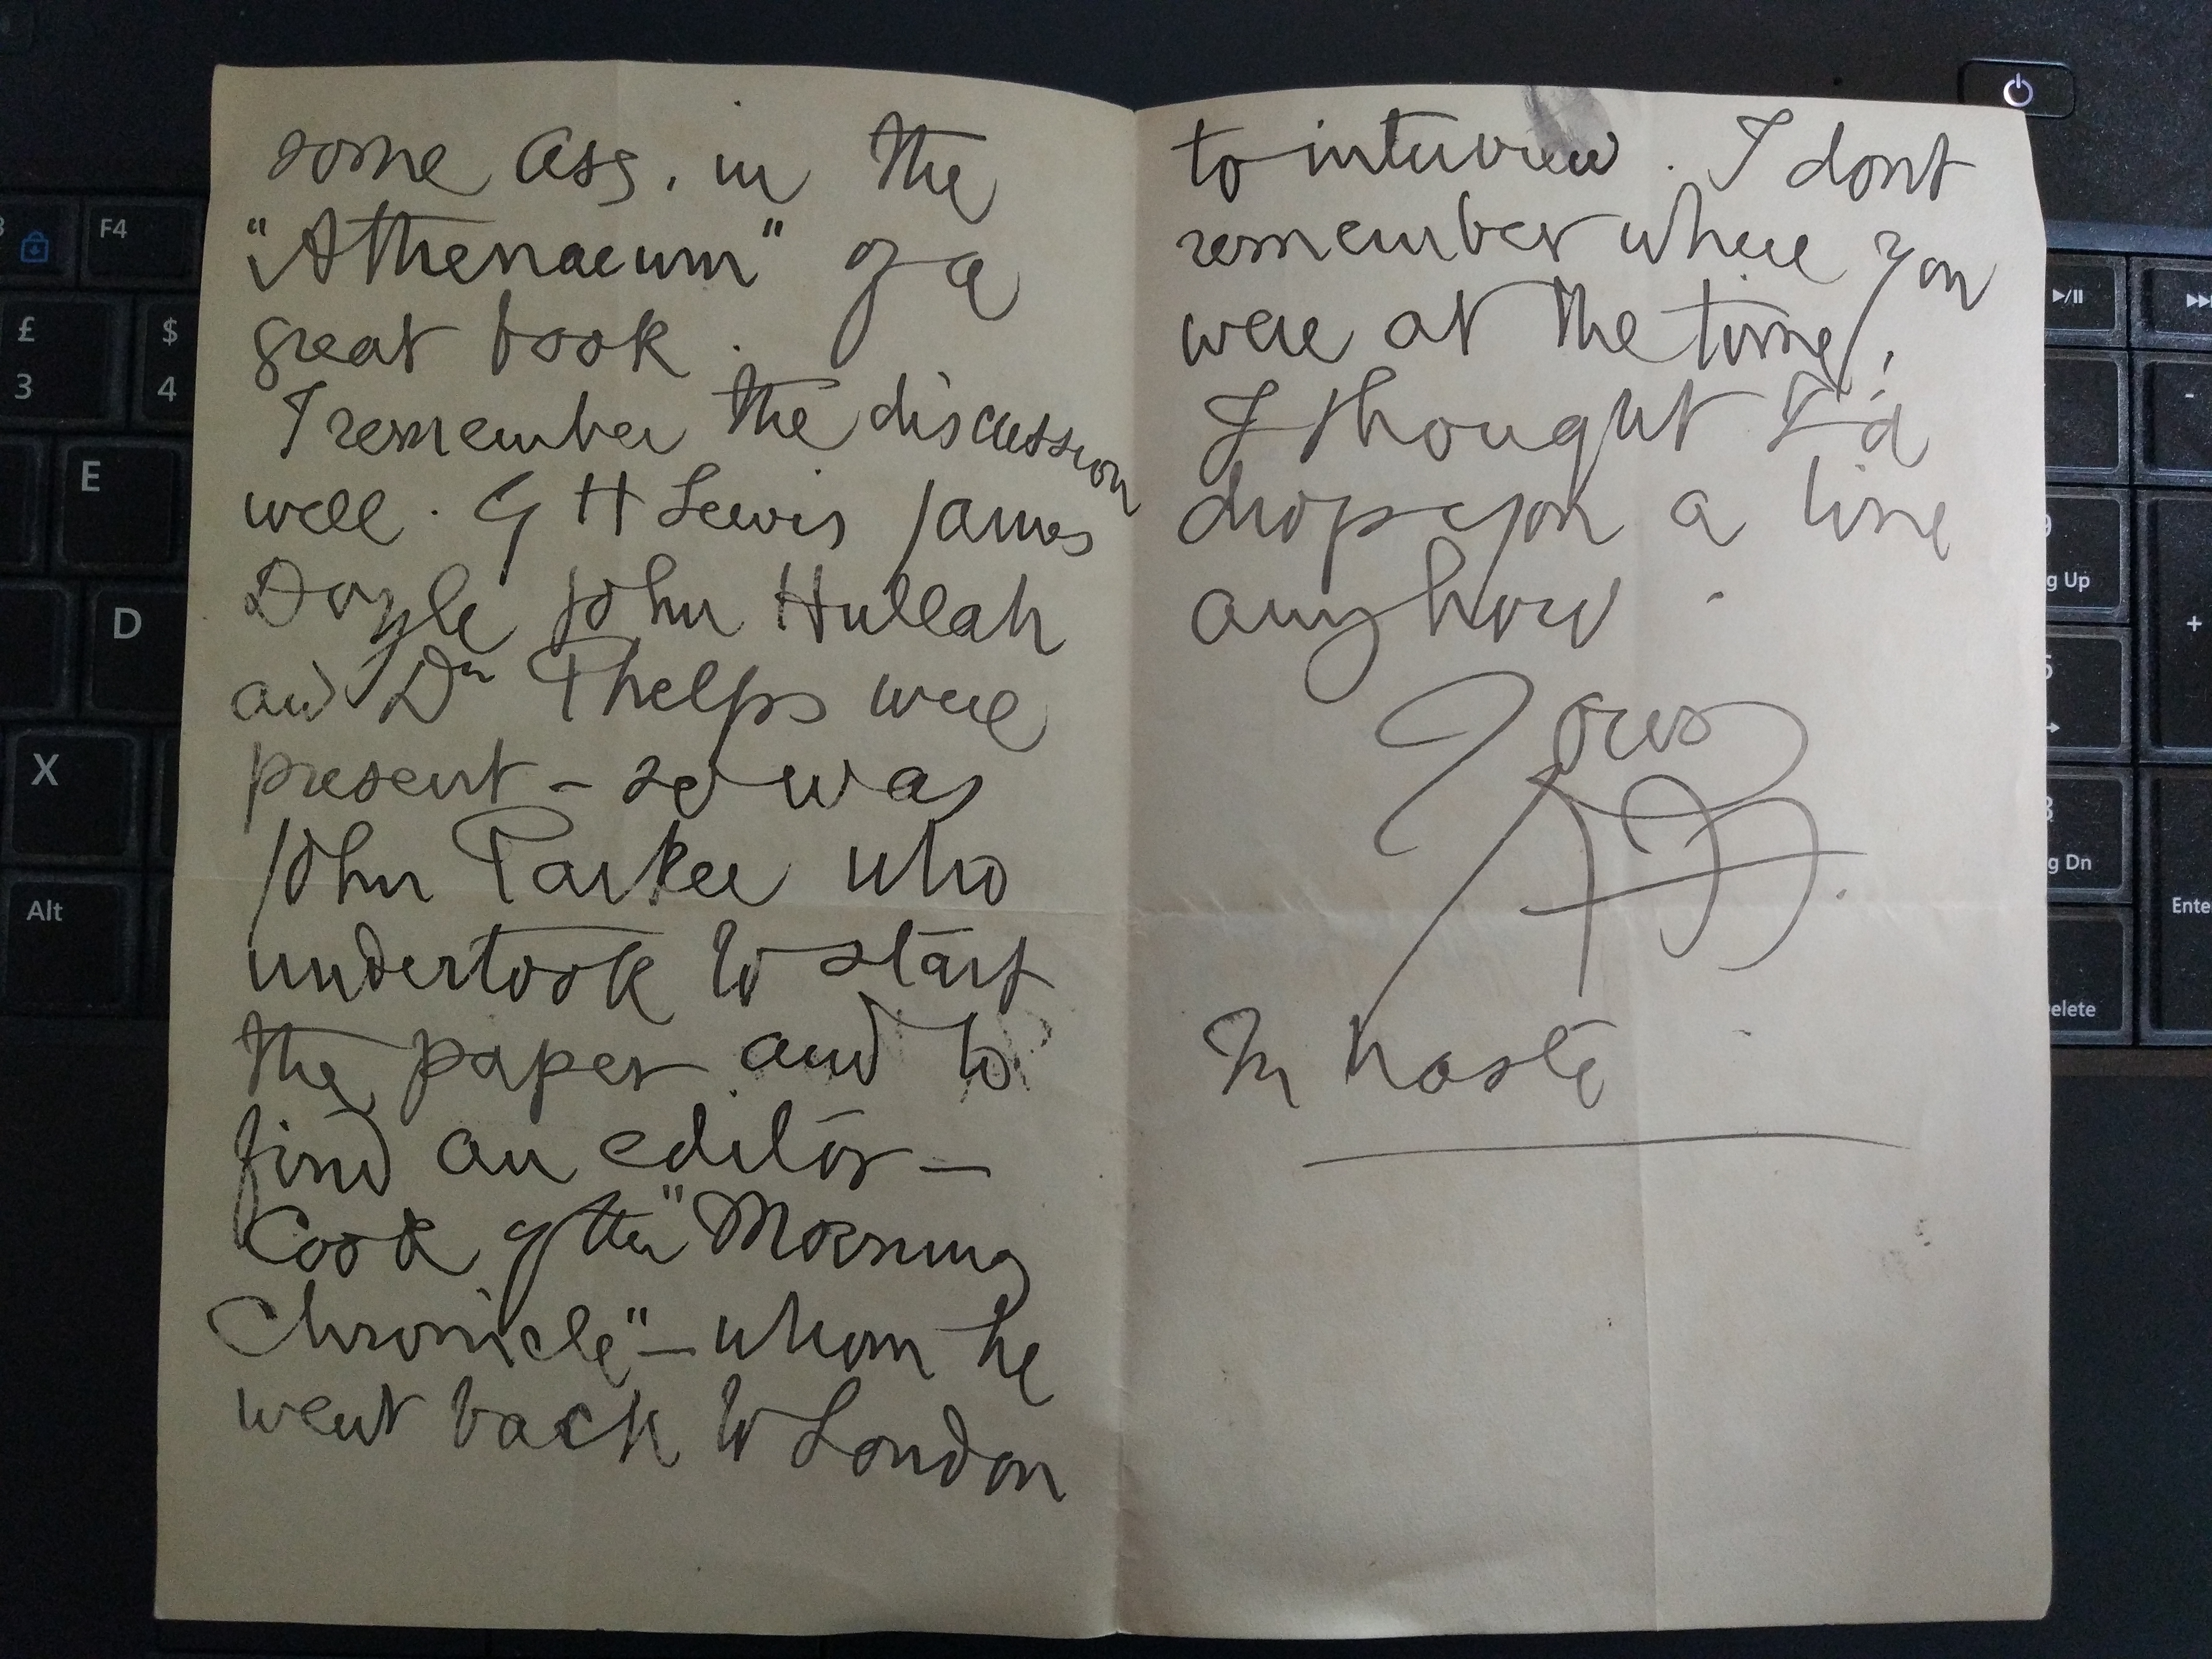 some Ass. in the
"Athenaeum" of a
great book.
I remember the discussion
well. G H Lewis James
Doyle John Hullah
and Dr Phelps were
present – so was
John Parker who
undertook to start
the paper and to
find an editor –
Cook of the "Morning
Chronicle" – whom he
went back to London
to interview. I dont
remember where you
were at the time,
I thought I'd
drop you a line
anyhow.
Yours
In haste
F4
£
3
$
4
E
D
X
Alt
g Up
+
g Dn
Ente
elete